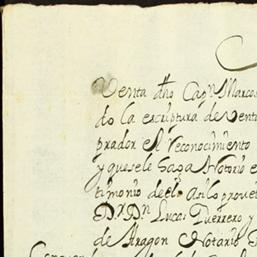 Venta dho Capn Marcos
do la escriptura de vent
prador el reconocimiento
y quesele haga Notorio e
timonio de ello Asi lo prove
Dr. Dn. Lucas Guerrero y
de Aragon Notario